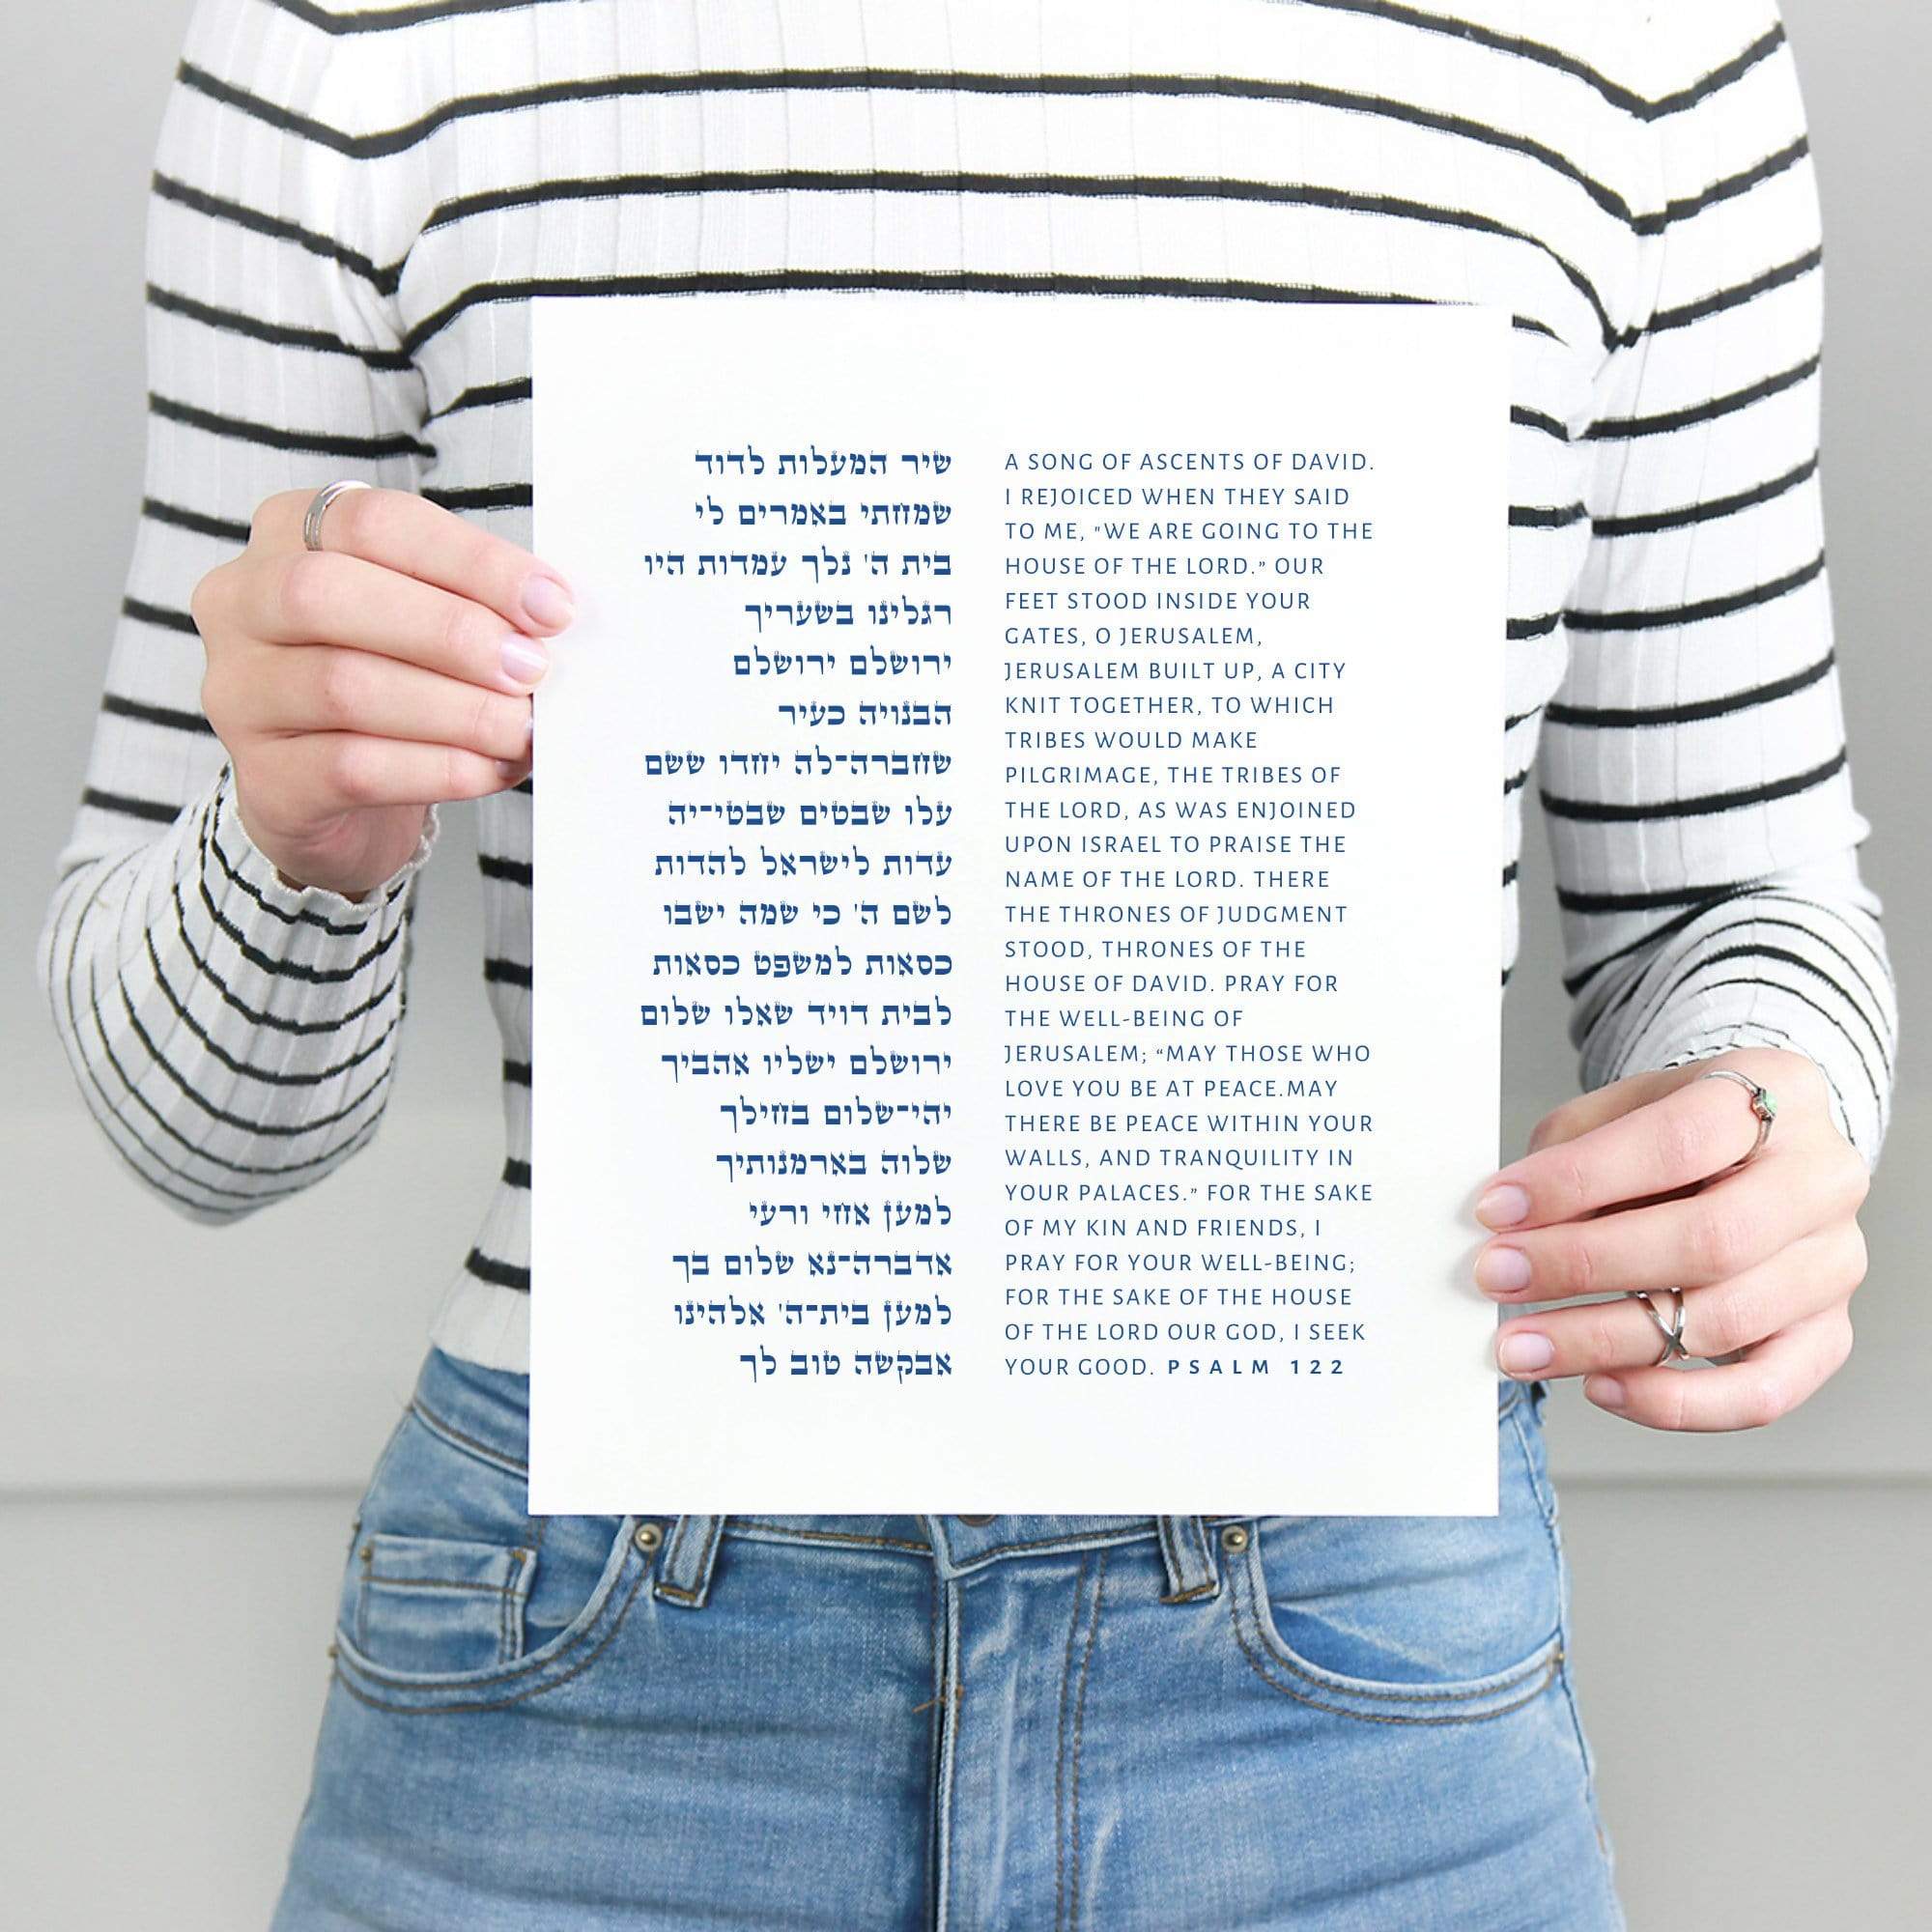 שיר המעלות לדוד
שמחתי באמרים לי
בית ה' נלך עמדות היו
רגלינו בשעריך
ירושלם ירושלם
הבנויה כעיר
שחברה־לה יחדו ששם
עלו שבטים שבטי־יה
עדות לישראל להדות
לשם ה' כי שמה ישבו
כסאות למשפט כסאות
לבית דויד שאלו שלום
ירושלם ישליו אהביך
יהי־שלום בחילך
שלוה בארמנותיך
למען אחי ורעי
אדברה־נא שלום בך
למען בית־ה' אלהינו
אבקשה טוב לך
A SONG OF ASCENTS OF DAVID.
I REJOICED WHEN THEY SAID
TO ME, "WE ARE GOING TO THE
HOUSE OF THE LORD.” OUR
FEET STOOD INSIDE YOUR
GATES, O JERUSALEM,
JERUSALEM BUILT UP, A CITY
KNIT TOGETHER, TO WHICH
TRIBES WOULD MAKE
PILGRIMAGE, THE TRIBES OF
THE LORD, AS WAS ENJOINED
UPON ISRAEL TO PRAISE THE
NAME OF THE LORD. THERE
THE THRONES OF JUDGMENT
STOOD, THRONES OF THE
HOUSE OF DAVID. PRAY FOR
THE WELL-BEING OF
JERUSALEM; “MAY THOSE WHO
LOVE YOU BE AT PEACE.MAY
THERE BE PEACE WITHIN YOUR
WALLS, AND TRANQUILITY IN
YOUR PALACES.” FOR THE SAKE
OF MY KIN AND FRIENDS, I
PRAY FOR YOUR WELL-BEING;
FOR THE SAKE OF THE HOUSE
OF THE LORD OUR GOD, I SEEK
YOUR GOOD. PSALM 122